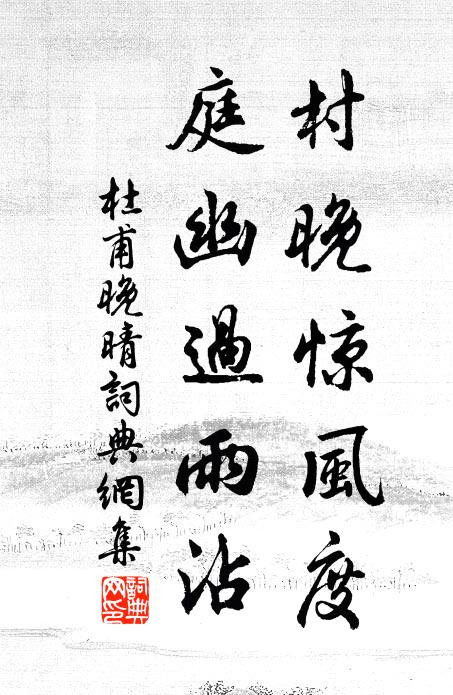 村晚惊風度
庭幽過雨沾
杜甫晚晴詞典網集
詞典网印